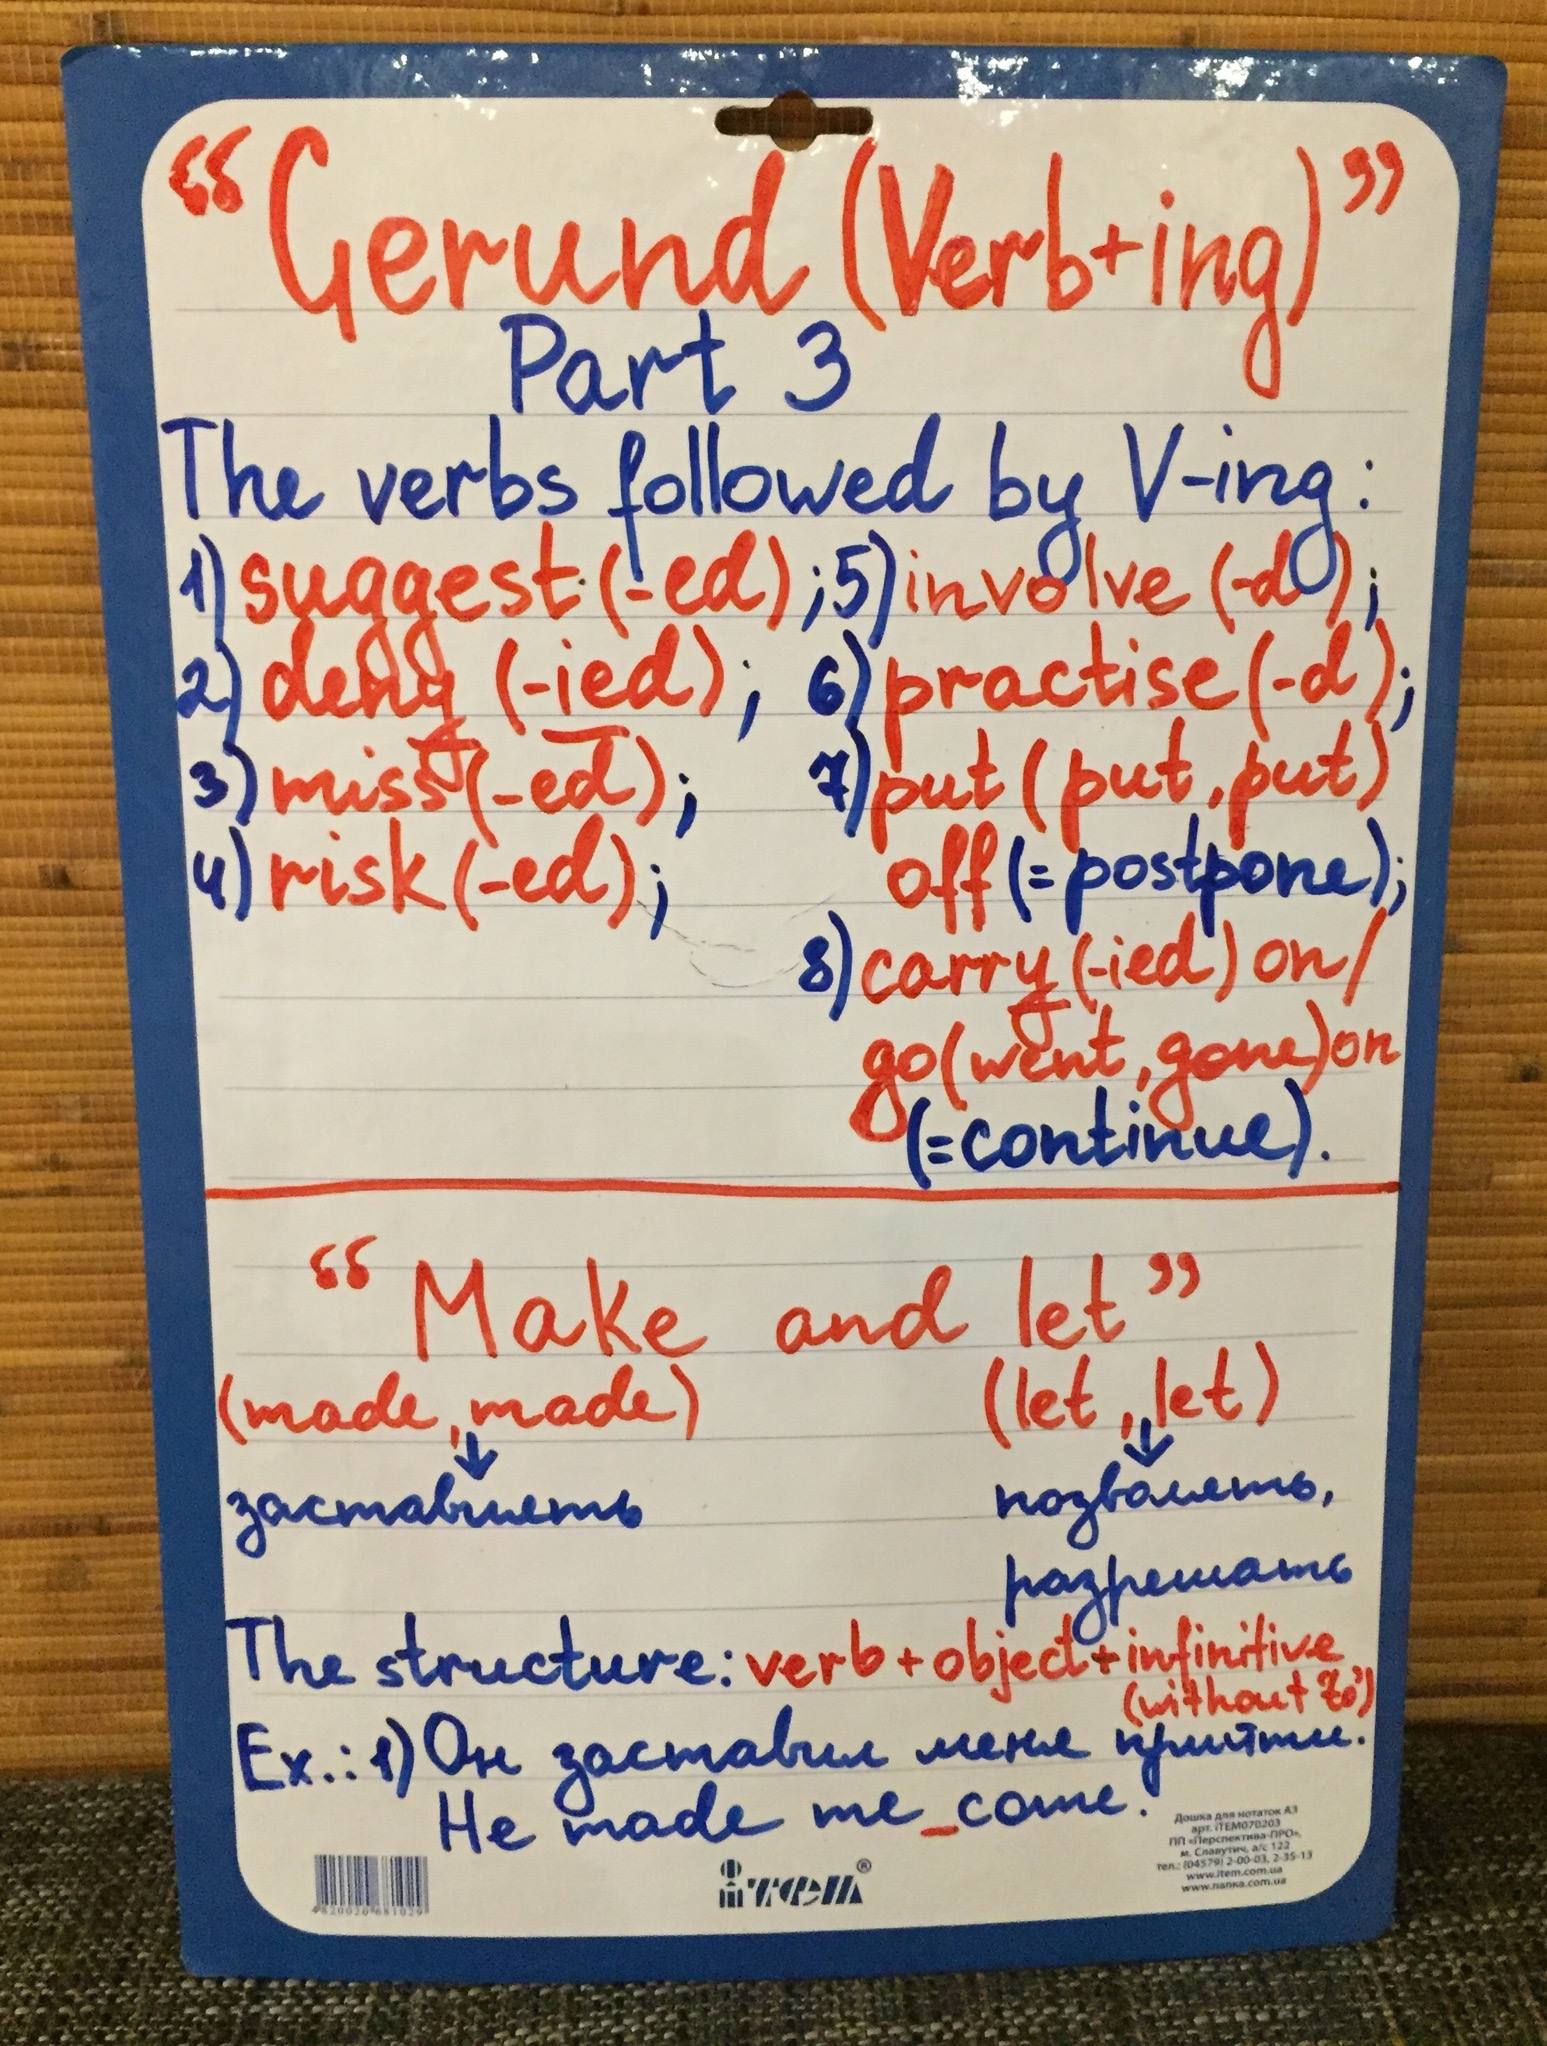 “Gerund (Verb+ing)”
Part 3
The verbs followed by V-ing:
1) suggest (-ed);
2) deny (-ied);
3) miss (-ed);
4) risk (-ed);
5) involve (-d);
6) practise (-d);
7) put (put, put)
off (=postpone);
8) carry (-ied) on/
go (went, gone) on
(=continue).
“Make and let”
(made, made) (let, let)
↓ ↓
заставлять позволять,
разрешать
The structure: verb + object + infinitive
(without 'to')
Ex.: 1) Он заставил меня прийти.
He made me_come.
Дошка для нотаток А3
арт. iTEM070203
ПП «Перспектива-ПРО»,
м. Славутич, а/с 122
тел.: (04579) 2-00-03, 2-35-13
www.item.com.ua
www.папка.com.ua
iтем®
4820020681029